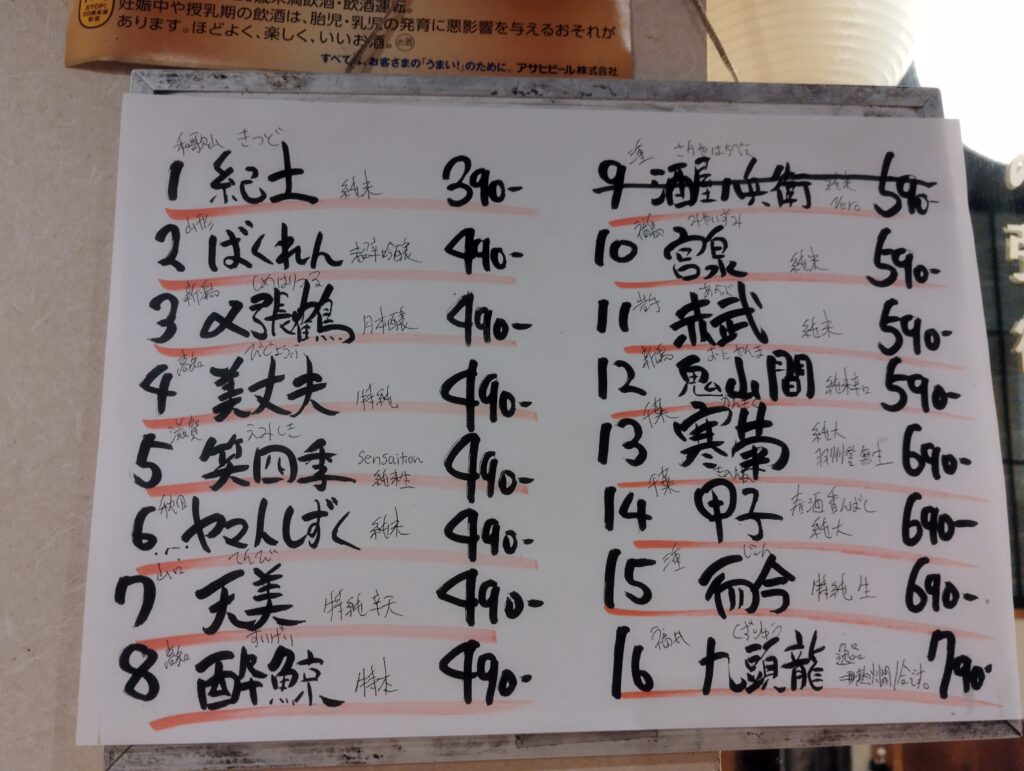 STOP!
満飲酒・飲酒運転。
妊娠中や授乳期の飲酒は、胎児・乳児の発育に悪影響を与えるおそれが
あります。ほどよく、楽しく、いいお酒。
すべては、お客さまの「うまい!」のために。アサヒビール株式会社
和歌山 きっど
1 紀土 純米 390-
山形
2 ばくれん 超辛吟醸 490-
新潟 しめはりつる
3 〆張鶴 490-
高知 びじょうふ
4 美丈夫 特純 490-
滋賀 えみしき
5 笑四季 Sensation 純米生 490-
秋田
6 ヤマトしずく 純米 490-
山口 てんび
7 天美 特純 490-
高知 すいげい
8 酔鯨 特本 490-
9 酒屋八兵衛 純米 590-
福島 みやいずみ
10 宮泉 純米 590-
岩手 あかぶ
11 赤武 純米 590-
新潟 おにやんま
12 鬼山間 純米辛口 590-
千葉 かんぎく
13 寒菊 純大 690-
千葉 きのえね
14 甲子 春酒香んばし 純大 690-
じこん
15 而今 特純 生 690-
福井 くずりゅう
16 九頭龍 逸品 790-